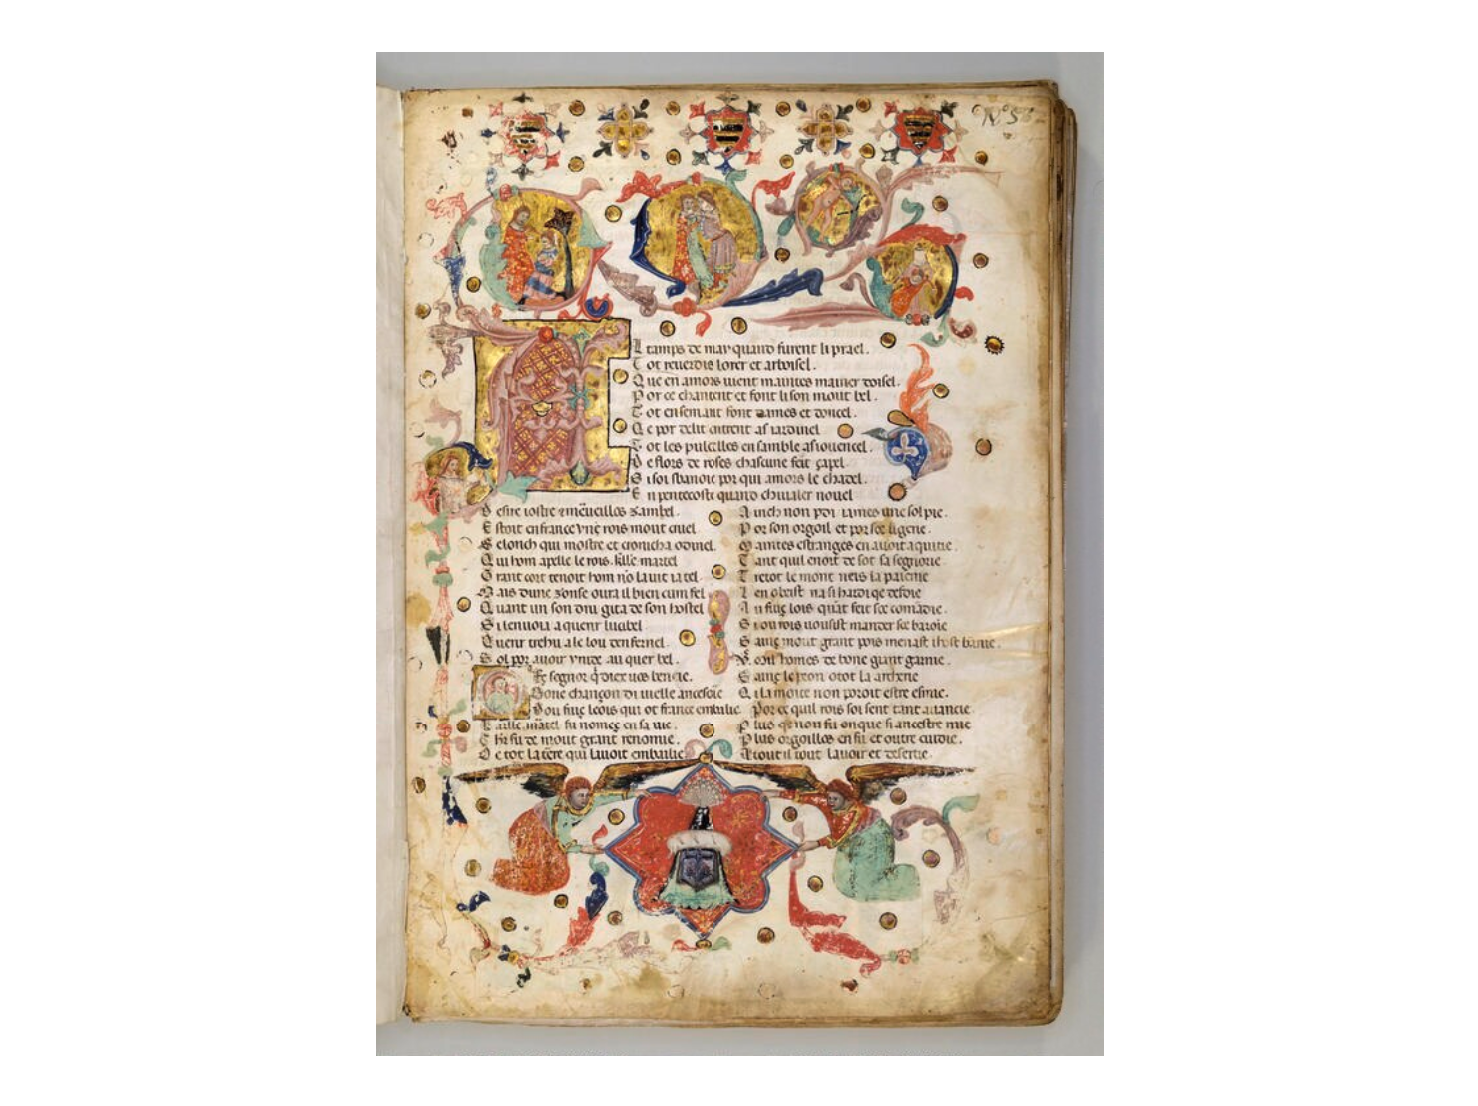 Nº 562
l tamps de may quand furent li prael.
T ot reuerdie lorer et arboisel.
Que en amors uient maintes mainer doisel.
P or ce chantent et font li son mout bel.
T ot ensemant font dames et doncel.
Q e por delit entrent as iardinel
T ot les pulcelles ensamble as iouencel.
D e flors de roses chascune feit çapel.
S i soi sbanoie por qui amors le chadel.
E n pentecoste quand chiualer nouel
D esire iostre & merueilles zambel.
E stoit en france vne rois mout cruel
S elonch qui mostre et cronicha odinel.
Q ui hom apelle le rois. kille martel
G rant cort tenoit hom no lauit ia tel.
M ais dune zonse oura il bien cum fel
Q uant un son dru gita de son hostel
S i lenuoia a querir lucibel
Querir trehu a le lou denfernel.
S ol por auoir vnde au quer bel.
Er segnor q diex uos beneie.
B one chançon di uielle ancesoie
D ou fiuç leois qui ot france en bailie
K aille. martel fu nomeç en sa uie.
C hi fu de mout grant renomie.
D e tot la tere qui lauoit en bailie
A inch non poi iames une sol pie.
P or son orgoil et por sce ligerie.
M aintes estranges en auoit aquitie.
T ant quil enort de sot sa segnorie
T retot le mont neis la paienie
L en obeist na si hardi qe desoie
A n fiuç lois quāt feit sce comādie.
S i ou rois uousist mander sce baroie
S auiç mout grant pois menast ihost banie.
N. con homes de bone giant garnie.
S auiç le tron otot la archerie
Q i la moite non poroit estre esmie.
Por ce quil rois soi sent tant auancie
P lus qe non fu onque si ancestre mie
P lus orgoilos en fu et outre cuidie.
A tout il tout lauoir et desertie.